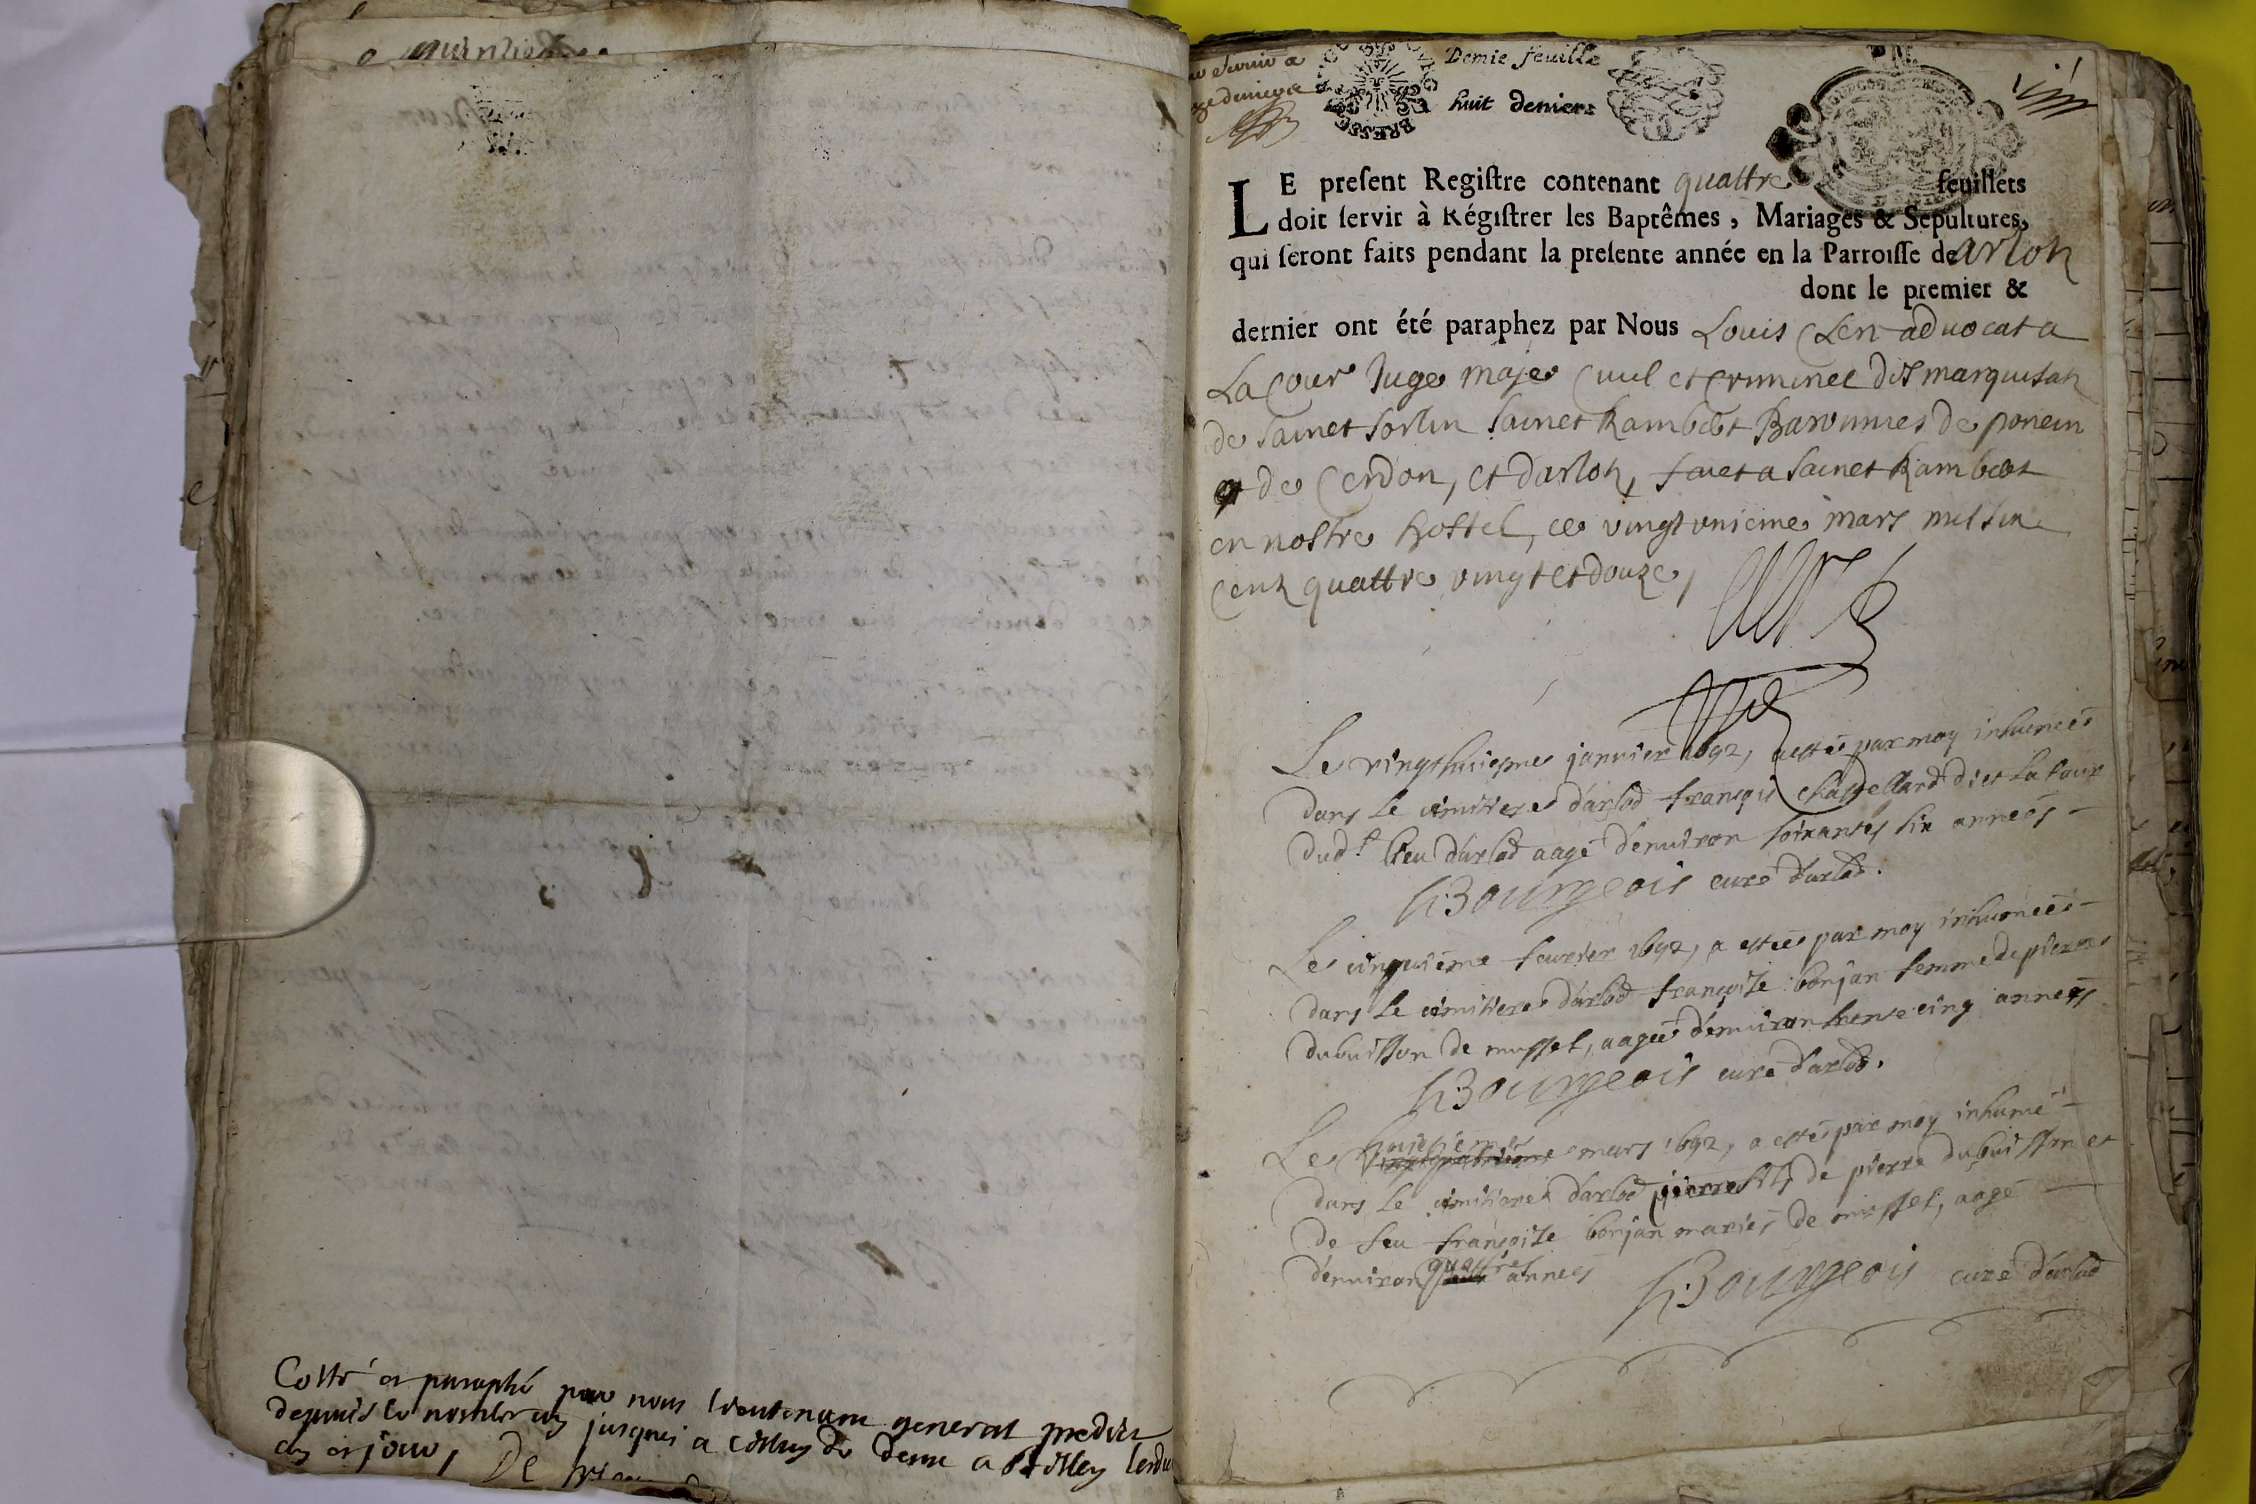 Cotté et paraphé par nous lieutenant general predict
depuis le nombre un jusques a celluy de deux a Belley lesdits
an et jour, De
Demie feuille
huit deniers
BRESSE
LE present Registre contenant quattre feuillets
doit servir à Régistrer les Baptêmes, Mariages & Sepultures,
qui seront faits pendant la presente année en la Parroisse de Arloz
dont le premier &
dernier ont été paraphez par Nous Louis advocat a
La Cour Juge maje Civil et Criminel des marquisatz
de sainct sorlin sainct Rambert Baronnies de poncin
et de Cerdon, et darloz, faict a sainct Rambert
en nostre hostel, ce vingt unieme mars mil six
centz quattre vingt et douze,
Le vingthuiesme janvier 1692, a estée par moy inhumeés
dans le cimitiere d'arlod françois chastellard dict La faur
dud.t lieu d'arlod aagé d'environ soixantes six anneés
Bourgeois curé d'arlod.
Le cinquiéme feurier 1692, a estée par moy inhumeés
dans le cimitiere d'arlod françoise bonjan femme de pierre
dubuisson de mussel, aageé d'environ trente cinq anneés
Bourgeois curé d'arlod.
Le huictiéme mars 1692, a esté par moy inhumé
dans le cimitiere d'arlod pierre fils de pierre dubuisson et
de feu françoise bonjan mariés de mussel, aagé
d'environ quattre anneés Bourgeois curé d'arlod